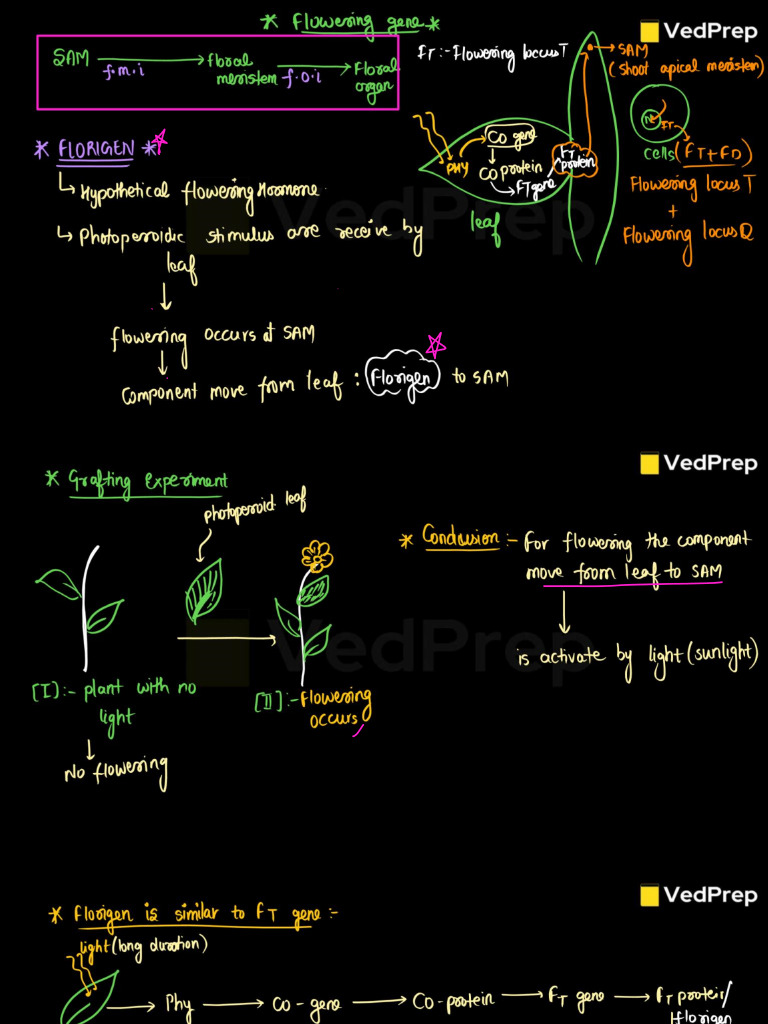 * Flowering gene *
VedPrep
SAM → floral meristem → Floral organ
f.m.i
f.o.i
FT :- Flowering locus T
SAM
(shoot apical meristem)
PHY
CO gene
CO protein
FT gene
FT protein
leaf
N
FT
cells (FT+FD)
Flowering locus T
+
Flowering locus D
* FLORIGEN *
↳ Hypothetical flowering Hormone
↳ Photoperoidic stimulus are receive by
leaf
↓
flowering occurs at SAM
↓
Component move from leaf : Florigen to SAM
VedPrep
VedPrep
* Grafting Experiment
photoperoid leaf
[I]:- plant with no
light
↓
No flowering
[II]:- Flowering
occurs
* Conclusion :- For flowering the component
move from leaf to SAM
↓
is activate by light (sunlight)
VedPrep
VedPrep
* Florigen is similar to FT gene :-
light (long duration)
→ Phy → CO - gene → CO-protein → FT gene → FT protein/
Florigen